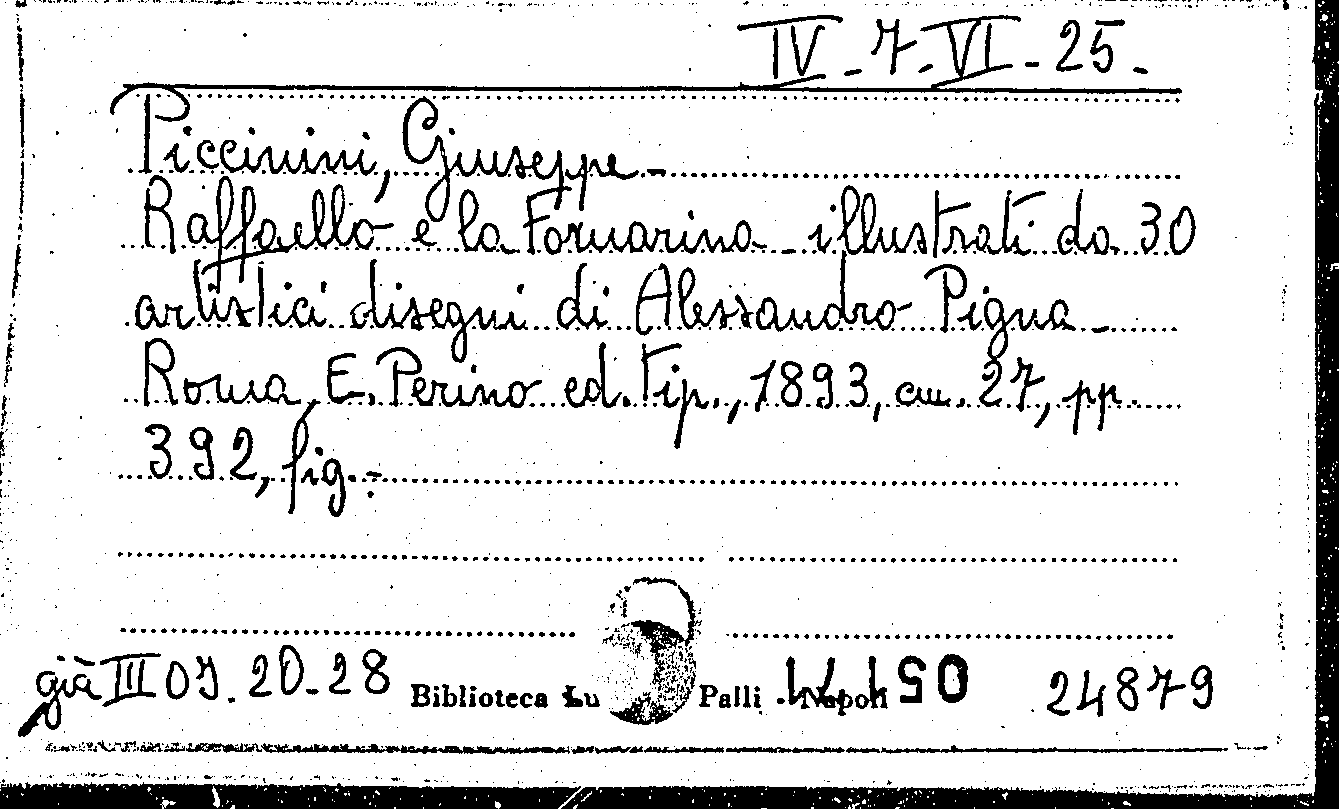 IV-7-VI-25-
Piccinini, Giuseppe-
Raffaello e la Fornarina - illustrati da 30
artistici disegni di Alessandro Pigna-
Roma, E. Perino ed. Tip., 1893, cm. 27, pp.
392, fig.-
già III 20-28
Biblioteca Lu Palli Napoli 24879